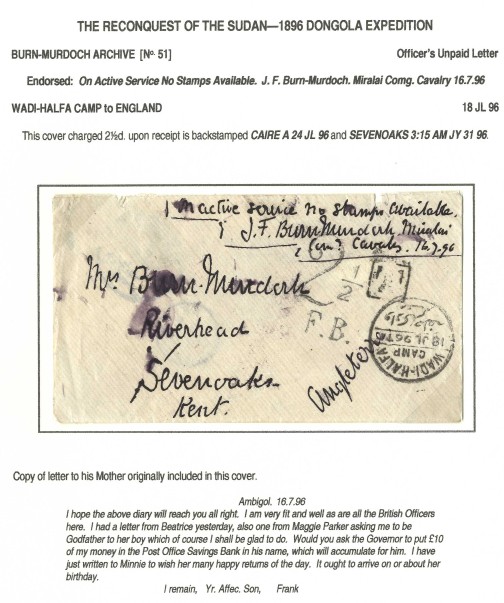 THE RECONQUEST OF THE SUDAN—1896 DONGOLA EXPEDITION
BURN-MURDOCH ARCHIVE [No. 51]
Officer's Unpaid Letter
Endorsed: On Active Service No Stamps Available. J. F. Burn-Murdoch. Miralai Comg. Cavalry 16.7.96
WADI-HALFA CAMP to ENGLAND
18 JL 96
This cover charged 2½d. upon receipt is backstamped CAIRE A 24 JL 96 and SEVENOAKS 3:15 AM JY 31 96.
On active service no stamps available.
J.F. Burn Murdoch Miralai
Com? Cavalry. 16.7.96
Mrs Burn-Murdoch
Riverhead
Sevenoaks
Kent.
2 1/2
F.B.
T
Angleterre
WADI-HALFA
CAMP
18 JL 96
Copy of letter to his Mother originally included in this cover.
Ambigol. 16.7.96
I hope the above diary will reach you all right. I am very fit and well as are all the British Officers
here. I had a letter from Beatrice yesterday, also one from Maggie Parker asking me to be
Godfather to her boy which of course I shall be glad to do. Would you ask the Governor to put £10
of my money in the Post Office Savings Bank in his name, which will accumulate for him. I have
just written to Minnie to wish her many happy returns of the day. It ought to arrive on or about her
birthday.
I remain, Yr. Affec. Son, Frank